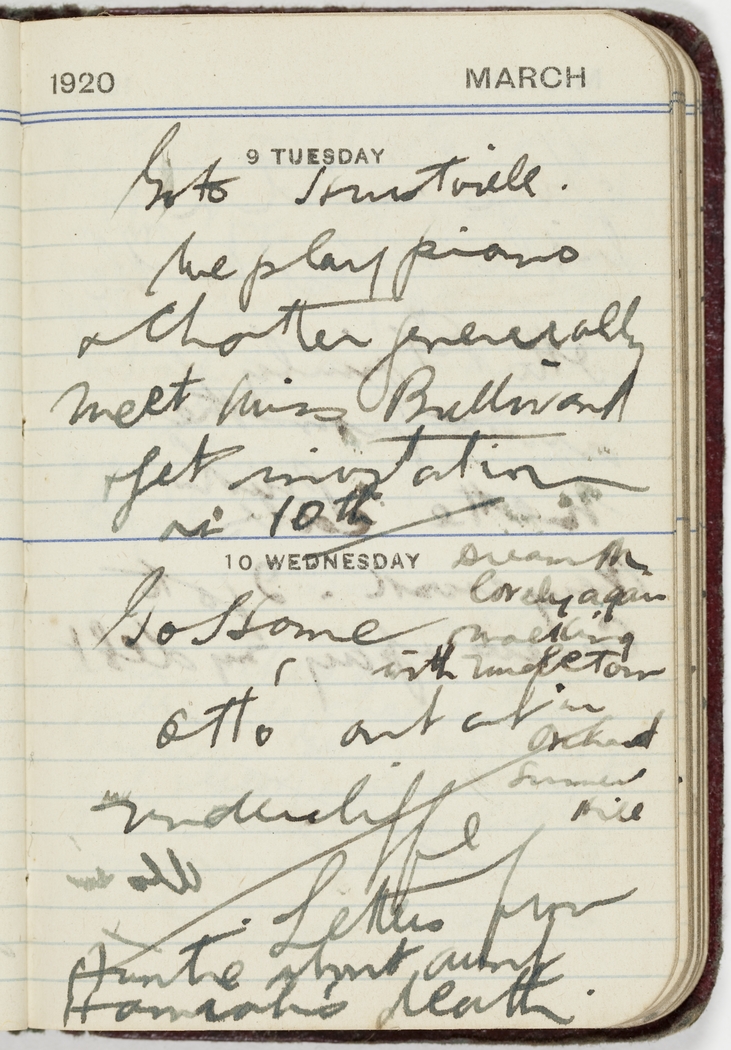 1920 MARCH
9 TUESDAY
Go to Hurstville.
We play piano
& Chatter generally
Meet Miss
get invitation
10th
10 WEDNESDAY
Go Home
Otto out at
Undercliffe
Letters from
Auntie about aunt
Hannah's death.
Dream
lovely again
walking
with
in
Orchard
Summer
Hill